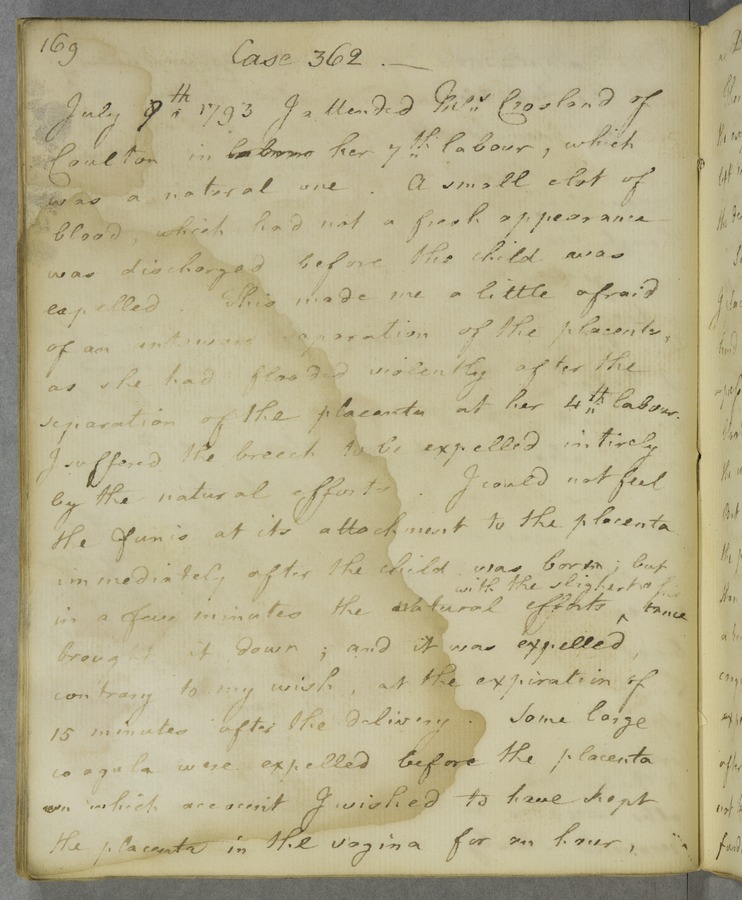 169
Case 362.
July 9th 1793 I attended Mrs Crosland of
Coulton in labour her 7th labour, which
was a natural one. A small clot of
blood, which had not a fresh appearance
was discharged before the child was
expelled. This made me a little afraid
of an separation of the placenta,
as she had flooded violently after the
separation of the placenta at her 4th labour.
I suffered the breech to be expelled intirely
by the natural efforts. I could not feel
the funis at its attachment to the placenta
immediately after the child was born; but
with the slightest assis
in a few minutes the natural efforts ^ tance
brought it down; and it was expelled,
contrary to my wish, at the expiration of
15 minutes after the delivery. Some large
coagula were expelled before the placenta
on which account I wished to have kept
the placenta in the vagina for an hour,